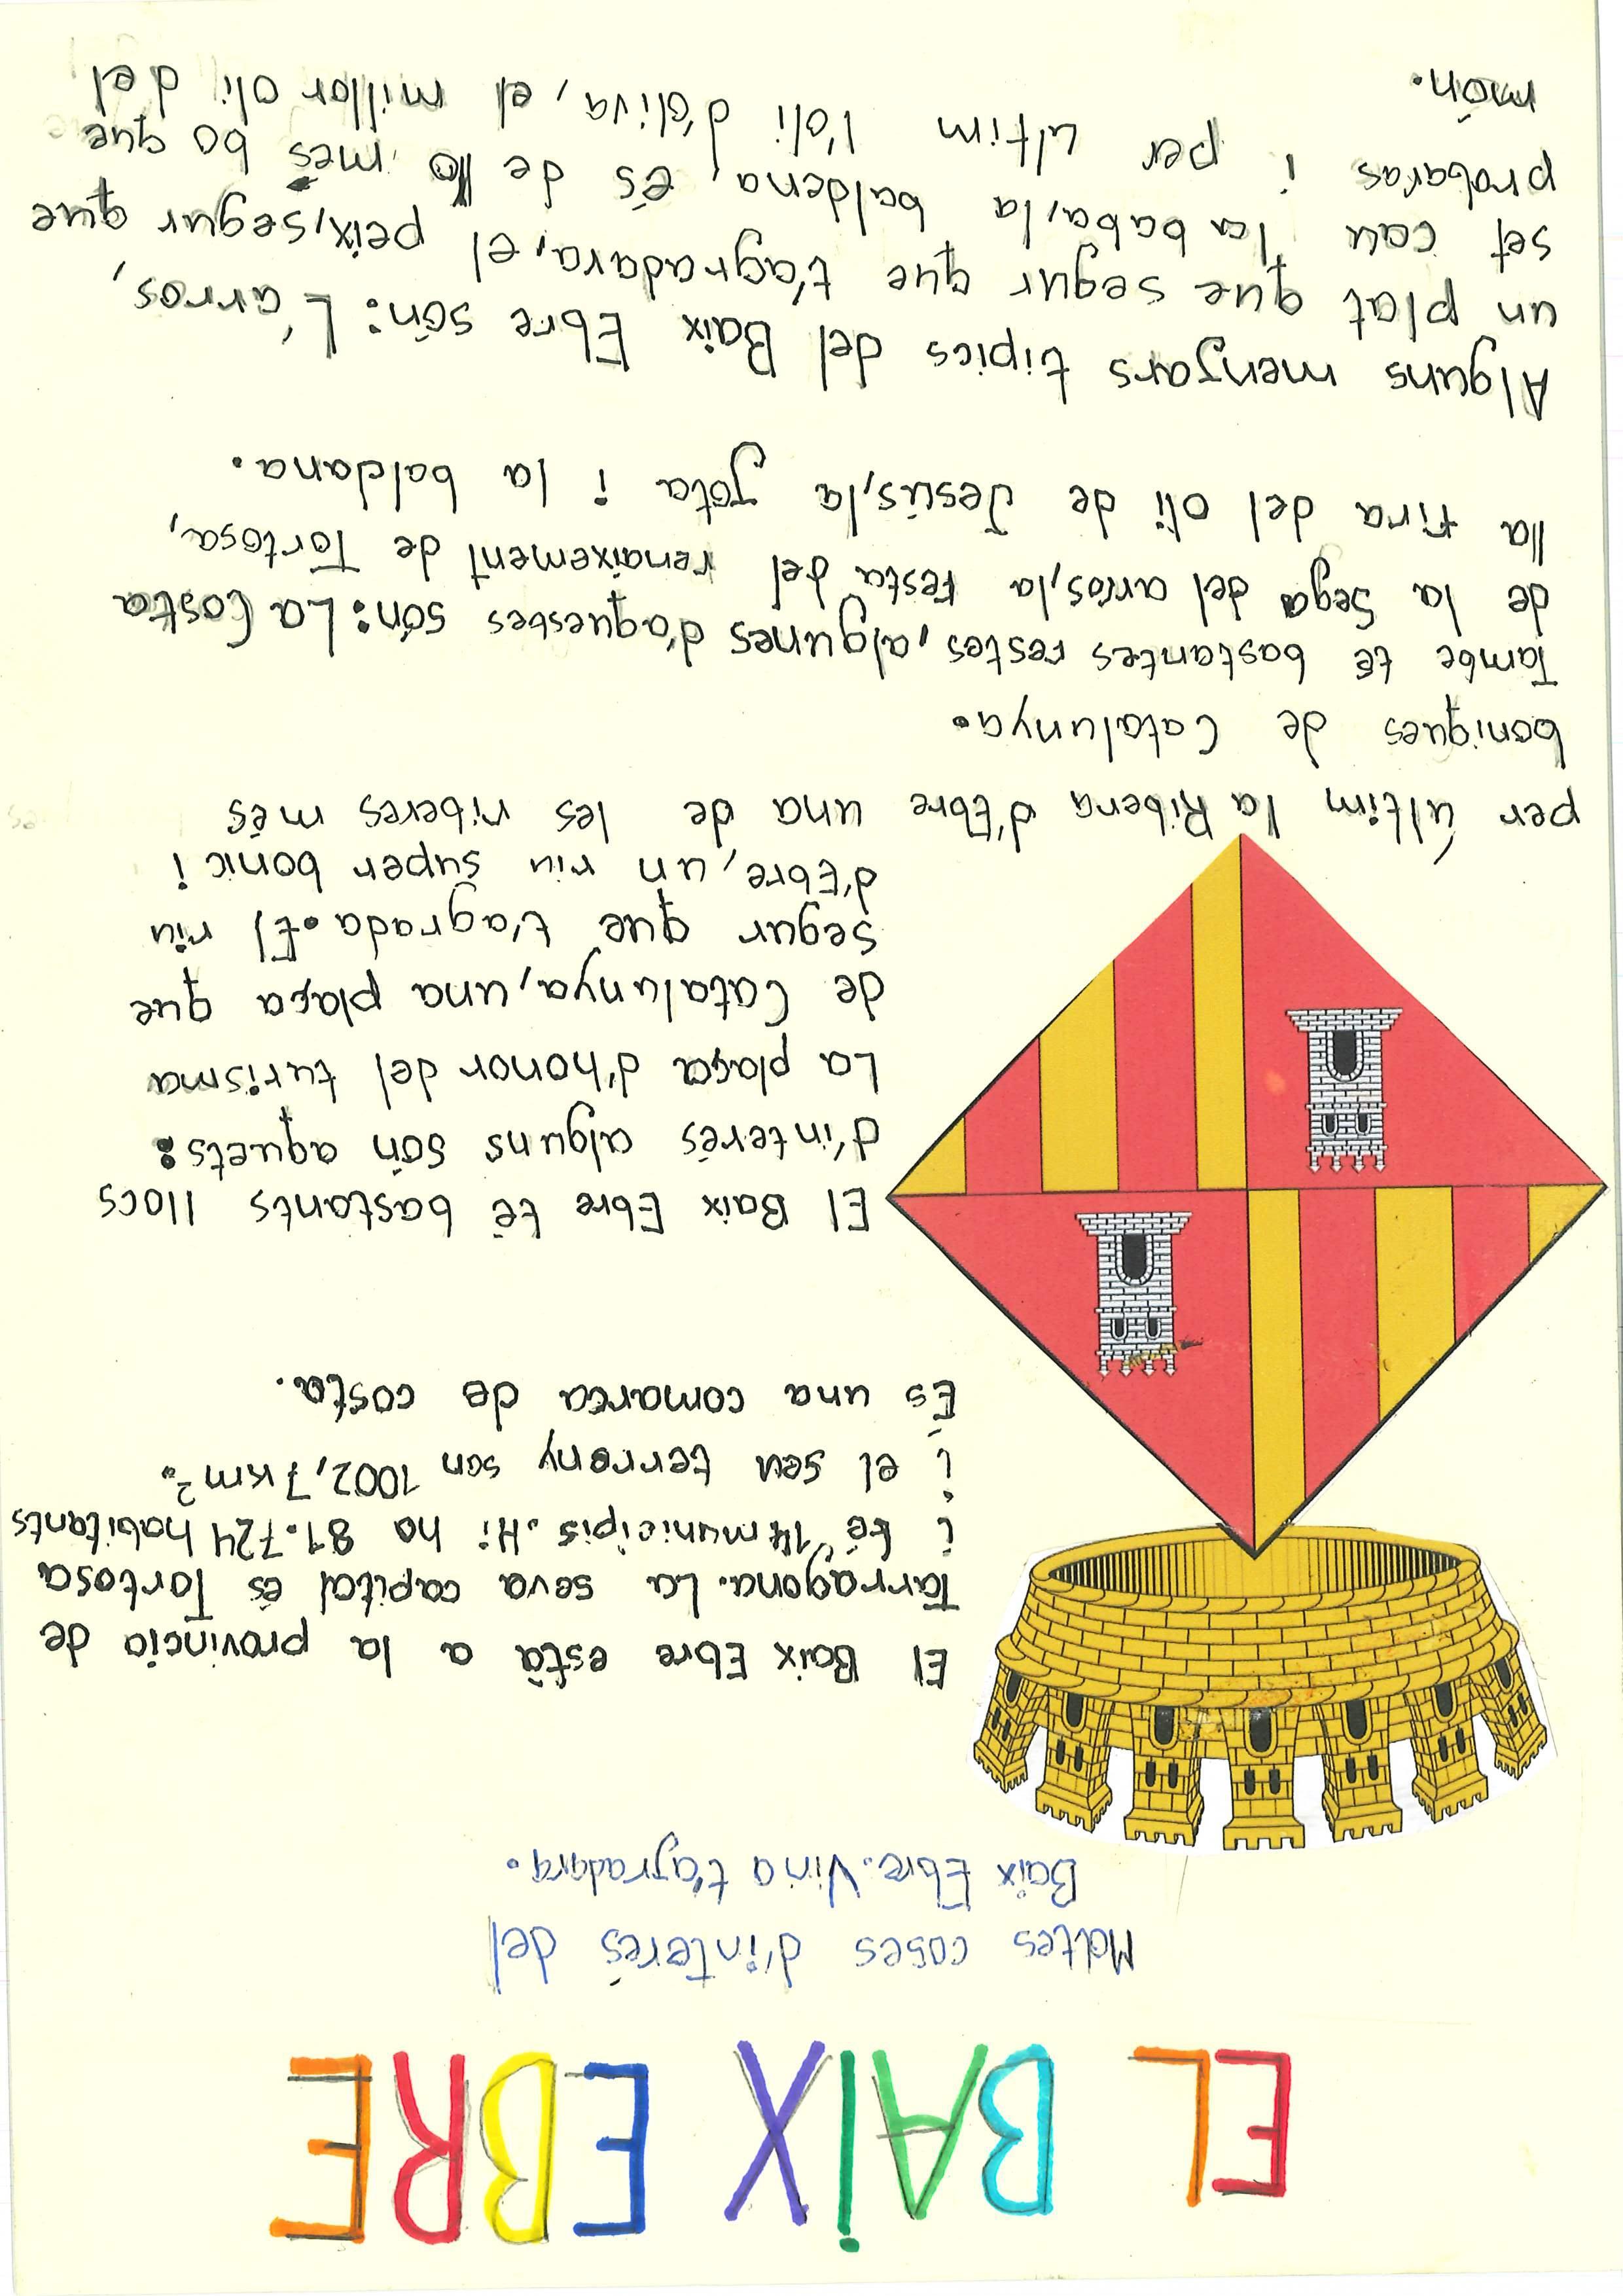 EL BAIX EBRE
Moltes coses d'interés del
Baix Ebre. Vina t'agradara.
El Baix Ebre està a la provincia de
Tarragona. La seva capital és Tortosa
i té 14 municipis. Hi ha 81.724 habitants
i el seu terreny són 1002,7 km².
És una comarca de costa.
El Baix Ebre té bastants llocs
d'interés alguns són aquets:
La plaça d'honor del turisma
de Catalunya, una plaça que
segur que t'agrada. El riu
d'Ebre, un riu super bonic i
per últim la Ribera d'Ebre una de les riberes més
boniques de Catalunya.
Tambe té bastantes festes, algunes d'aquestes són: La Costa
de la Sega del arros, la festa del renaixement de Tortosa,
lla fira del oli de Jesús, la Jota i la baldana.
Alguns menjars tipics del Baix Ebre són: L'arros,
un plat que segur que t'agradara, el peix, segur que
set cau la baba, la baldena, és de lo més bo que
probaras i per ultim l'oli d'oliva, el millor oli del
món.